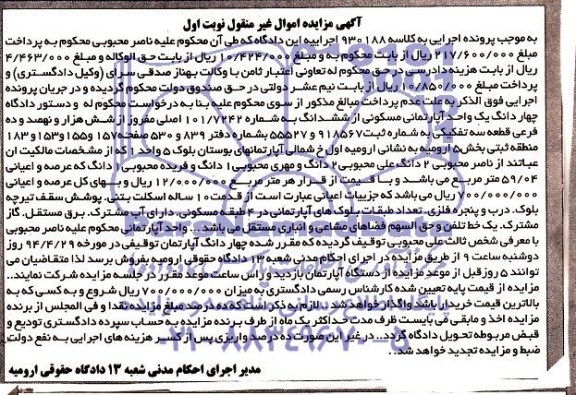 آگهی مزایده اموال غیر منقول نوبت اول
به موجب پرونده اجرایی به کلاسه ۹۳۰۱۸۸ اجراییه این دادگاه که طی آن محکوم علیه ناصر محبوبی محکوم به پرداخت
مبلغ ۲۱۷/۶۰۰/۰۰۰ ریال از بابت محکوم به و مبلغ ۱۰/۴۲۴/۰۰۰ ریال از بابت حق الوکاله و مبلغ ۴/۴۶۳/۰۰۰
ریال از بابت هزینه دادرسی در حق محکوم له تعاونی اعتبار ثامن با وکالت بهناز صدقی سرای (وکیل دادگستری) و
پرداخت مبلغ ۱۰/۸۵۰/۰۰۰ ریال از بابت نیم عشر دولتی در حق صندوق دولت محکوم گردیده و در جریان پرونده
اجرایی فوق الذکر به علت عدم پرداخت مبالغ مذکور از سوی محکوم علیه بنا به درخواست محکوم له و دستور دادگاه
چهار دانگ یک واحد آپارتمانی مسکونی از ششدانگ به شماره ۱۰۱/۷۲۴۲ اصلی مفروز از شش هزار و نهصد و ده
فرعی قطعه سه تفکیکی به شماره ثبت ۹۱۸۵۶۷ و ۵۵۵۲۷ بشماره دفتر ۸۳۹ و ۵۳۰ صفحه ۱۵۷ و ۱۵۵ و ۱۵۳ و ۱۸۳
منطقه ثبتی بخش ۵ ارومیه به نشانی ارومیه اول خ شمالی آپارتمانهای بوستان بلوک ۵ واحد ۱ که از مشخصات مالکیت آن
عبارتند از ناصر محبوبی ۲ دانگ علی محبوبی ۲ دانگ و مهری محبوبی ۱ دانگ و فریده محبوبی ۱ دانگ که عرصه و اعیانی
۵۹/۰۴ متر مربع می باشد و با قیمت از قرار هر متر مربع ۱۲/۰۰۰/۰۰۰ ریال و بهای کل عرصه و اعیانی
۷۰۰/۰۰۰/۰۰۰ ریال می باشد که جزییات اعیانی عبارت است از قدمت ۱۰ ساله اسکلت بتنی. پوشش سقف تیرچه
بلوک. درب و پنجره فلزی. تعداد طبقات بلوک های آپارتمانی در ۴ طبقه مسکونی. دارای آب مشترک. برق مستقل. گاز
مشترک. یک خط تلفن و حق السهم فضاهای مشاعی و انباری مستقل می باشد... واحد آپارتمانی محکوم علیه ناصر محبوبی
با معرفی شخص ثالث علی محبوبی توقیف گردیده که مقرر شده چهار دانگ آپارتمان توقیفی در مورخه ۹۴/۴/۲۹ روز
دوشنبه ساعت ۹ از طریق مزایده در اجرای احکام مدنی شعبه ۱۳ دادگاه حقوقی ارومیه بفروش برسد لذا متقاضیان می
توانند ۵ روز قبل از موعد مزایده از دستگاه آپارتمان بازدید و راس ساعت موعد مقرر در جلسه مزایده شرکت نمایند..
مزایده از قیمت پایه تعیین شده کارشناس رسمی دادگستری به میزان ۷۰۰/۰۰۰/۰۰۰ ریال شروع و به کسی که به
بالاترین قیمت خریدار باشد واگذار خواهد شد.. لازم به ذکر است که ده درصد مبلغ مزایده نقدا و فی المجلس از برنده
مزایده اخذ و مابقی می بایست ظرف مدت حداکثر یک ماه از طرف برنده مزایده به حساب سپرده دادگستری تودیع و
قبض مربوطه تحویل دادگاه گردد.. در غیر این صورت ده درصد واریزی پس از کسر هزینه های اجرایی به نفع دولت
ضبط و مزایده تجدید خواهد شد..
مدیر اجرای احکام مدنی شعبه ۱۳ دادگاه حقوقی ارومیه